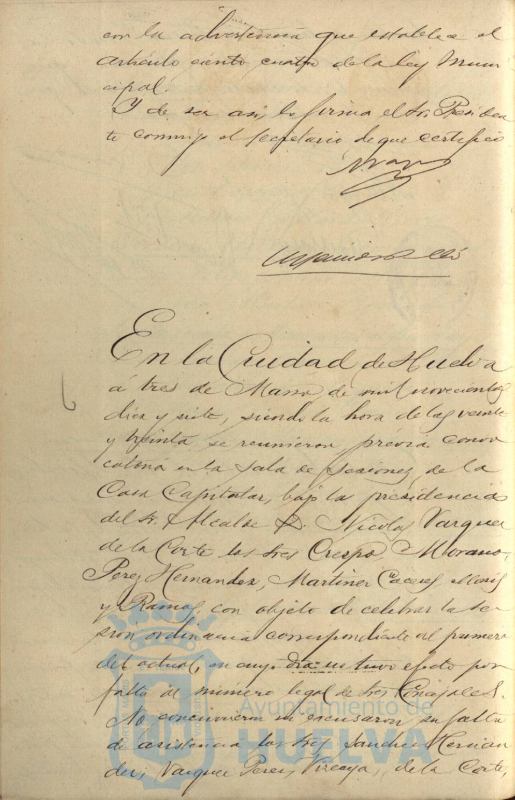 con la advertencia que establece el
artículo ciento cuatro de la ley Muni-
cipal.
Y de ser así lo firma el Sr. Presiden-
te conmigo el Secretario de que certifico
En la Ciudad de Huelva
á tres de Marzo de mil novecientos
diez y siete, siendo la hora de las veinte
y treinta se reunieron prévia convo-
catoria en la Sala de Sesiones de la
Casa Capitular, bajo la presidencia
del Sr. Alcalde D. Nicolás Vazquez
de la Corte los Sres Crespo, Morano,
Perez Hernandez, Martinez Caceres,
y Ramos, con objeto de celebrar la se-
sion ordinaria correspondiente al primero
del actual, en cuyo dia no tuvo efecto por
falta de número legal de Sres Concejales.
No concurrieron ni escusaron su falta
de asistencia los Sres Sanchez Hernan-
dez, Vazquez Perez, Vizcaya, de la Corte,
Ayuntamiento de
HUELVA